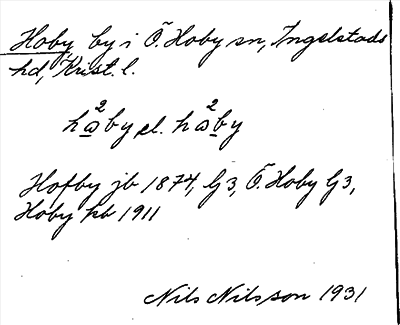 Hoby, by i Ö. Hoby sn, Ingelstads
hd, Krist. l.
ha²by el. ha²by
Hofby jb 1874, G3, Ö. Hoby G3,
Hoby kb 1911
Nils Nilsson 1931